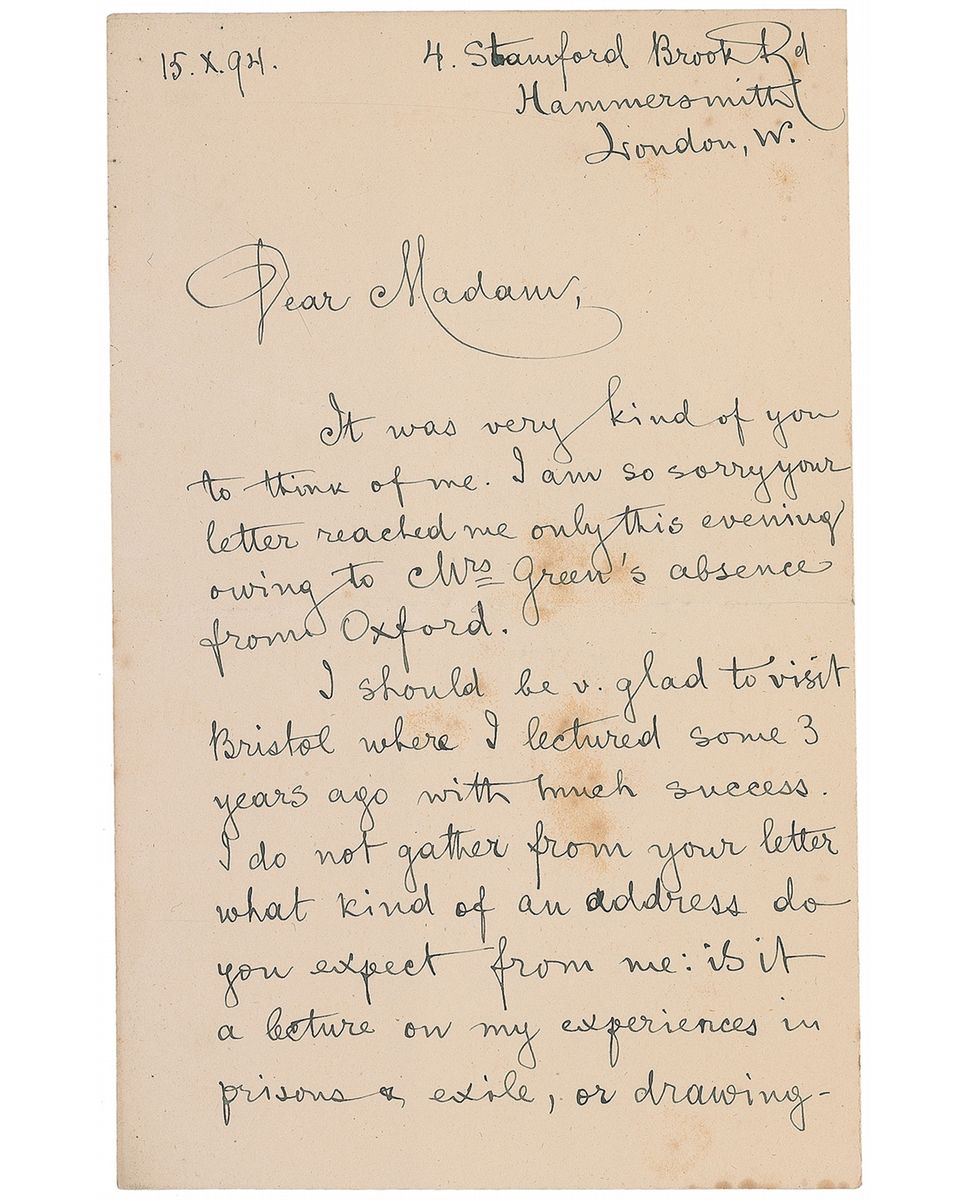 15.X.94. 4. Stamford Brook Rd
Hammersmith
London, W.
Dear Madam,
It was very kind of you
to think of me. I am so sorry your
letter reached me only this evening
owing to Mrs Green's absence
from Oxford.
I should be v. glad to visit
Bristol where I lectured some 3
years ago with much success.
I do not gather from your letter
what kind of an address do
you expect from me: is it
a lecture on my experiences in
prisons & exile, or drawing-